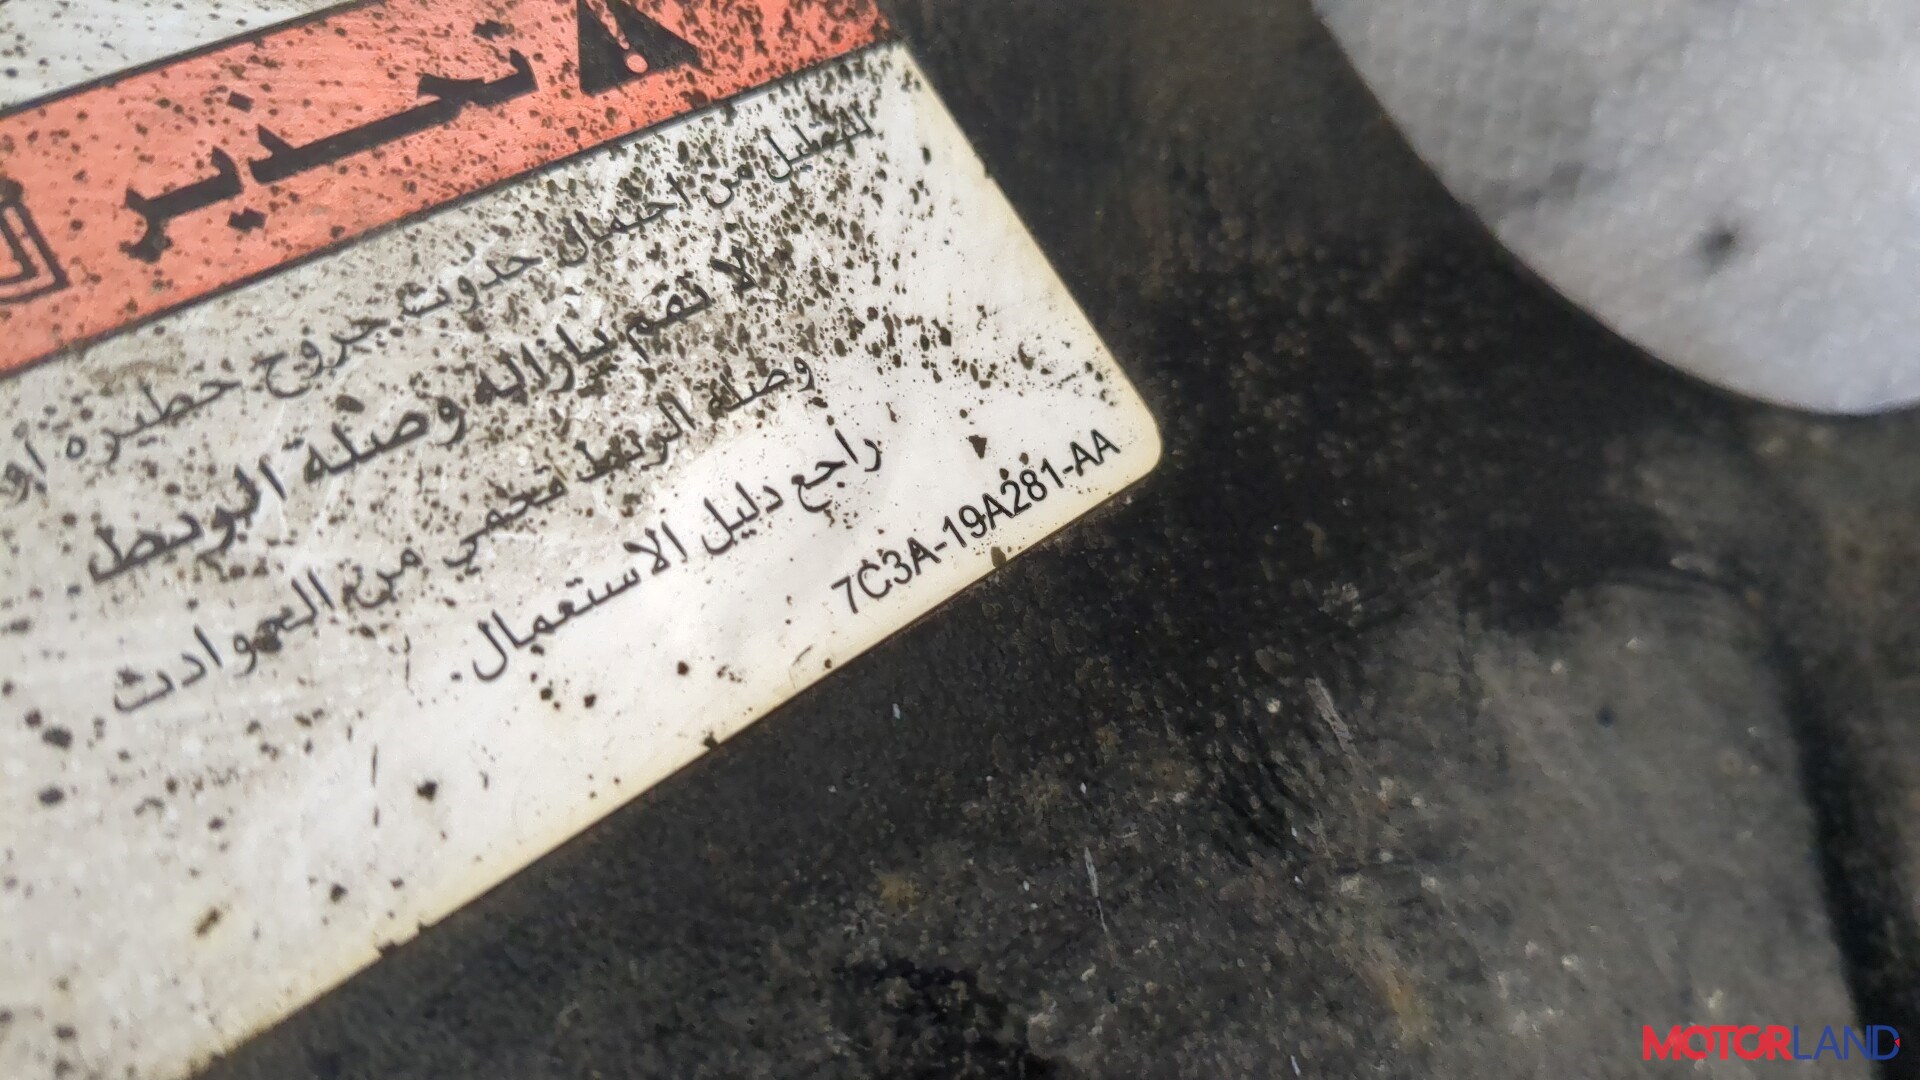 تحذير
للتقليل من احتمال حدوث جروح خطيرة أو
لا تقم بإزالة وصلة الربط.
وصلة الربط تحمي من الحوادث.
راجع دليل الاستعمال.
7C3A-19A281-AA
MOTORLAND